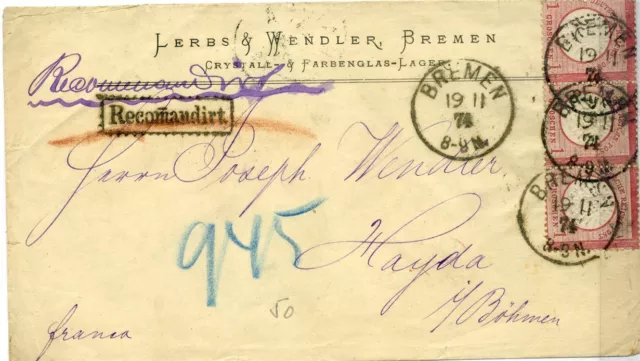 Lerbs & Wendler, Bremen
Crystall- & Farbenglas-Lager.
Recommandirt
Recomandirt.
BREMEN
19 11
74
8-9 N.
BREMEN
19 11
74
BREMEN
19 11
74
8-9 N.
BREMEN
19 11
74
8-9 N.
1 GROSCHEN
Herrn Joseph Wendler,
945
Hayda
i/Böhmen
50
franco